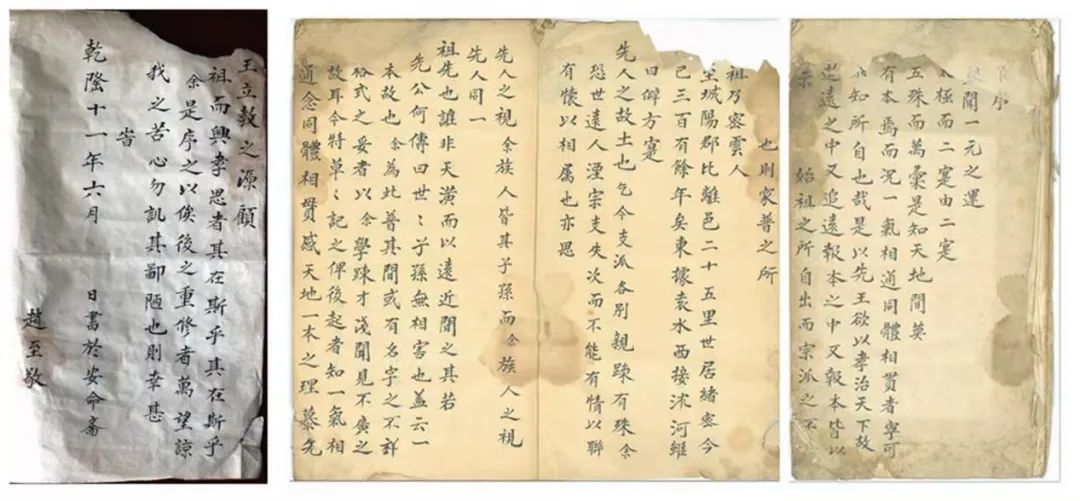 序
聞一元之運
太極而二寔由二寔
五殊而萬彙是知天地間莫
有本焉而況一氣相通同體相貫者寧可
不知所自也哉是以先王欲以孝治天下故
追遠之中又追遠報本之中又報本皆以
始祖之所自出而宗派之不
也則家普之所
祖乃密雲人
至城陽郡比離邑二十五里世居緒密今
已三百有餘年矣東據袁水西接洣河雖
曰僻方寔
先人之故土也乞今支派各別親踈有殊余
恐世遠人湮宗支失次而不能有情以聯
有懷以相属也亦思
先人之視余族人皆其子孫而余族人之視
先人同一
祖先也誰非天潢而以遠近閒之其若
先公何傳曰世〻子孫無相害也盖六一
本故也余為此普其間或有名字之不詳
裕式之妥者以余學踈才淺聞見不廣之
故耳今特草〻記之俾後起者知一氣相
通念同體相貫感天地一本之理慕先
王立教之源顧
祖而興孝思者其在斯乎其在斯乎
余是序之以俟後之重修者萬望諒
我之苦心勿訊其鄙陋也則幸甚
旹
乾隆十一年六月 日書於安命斋
趙至敬